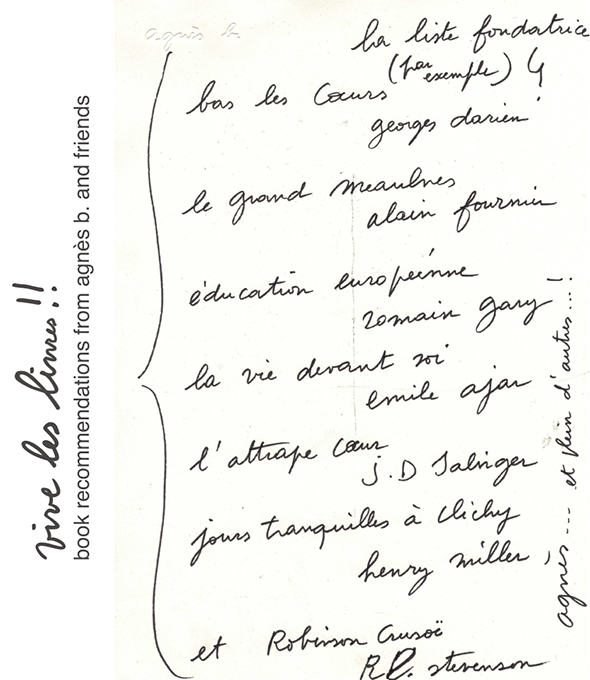 vive les livres!!
book recommendations from agnès b. and friends
agnès b.
la liste fondatrice
(par exemple)
bas les Cœurs
georges darien
le grand meaulnes
alain fournier
éducation européenne
romain gary
la vie devant soi
emile ajar
l'attrape Cœur
J.D Salinger
jours tranquilles à Clichy
henry miller,
et Robinson Crusoë
R.L. stevenson
agnès... et plein d'autres...!